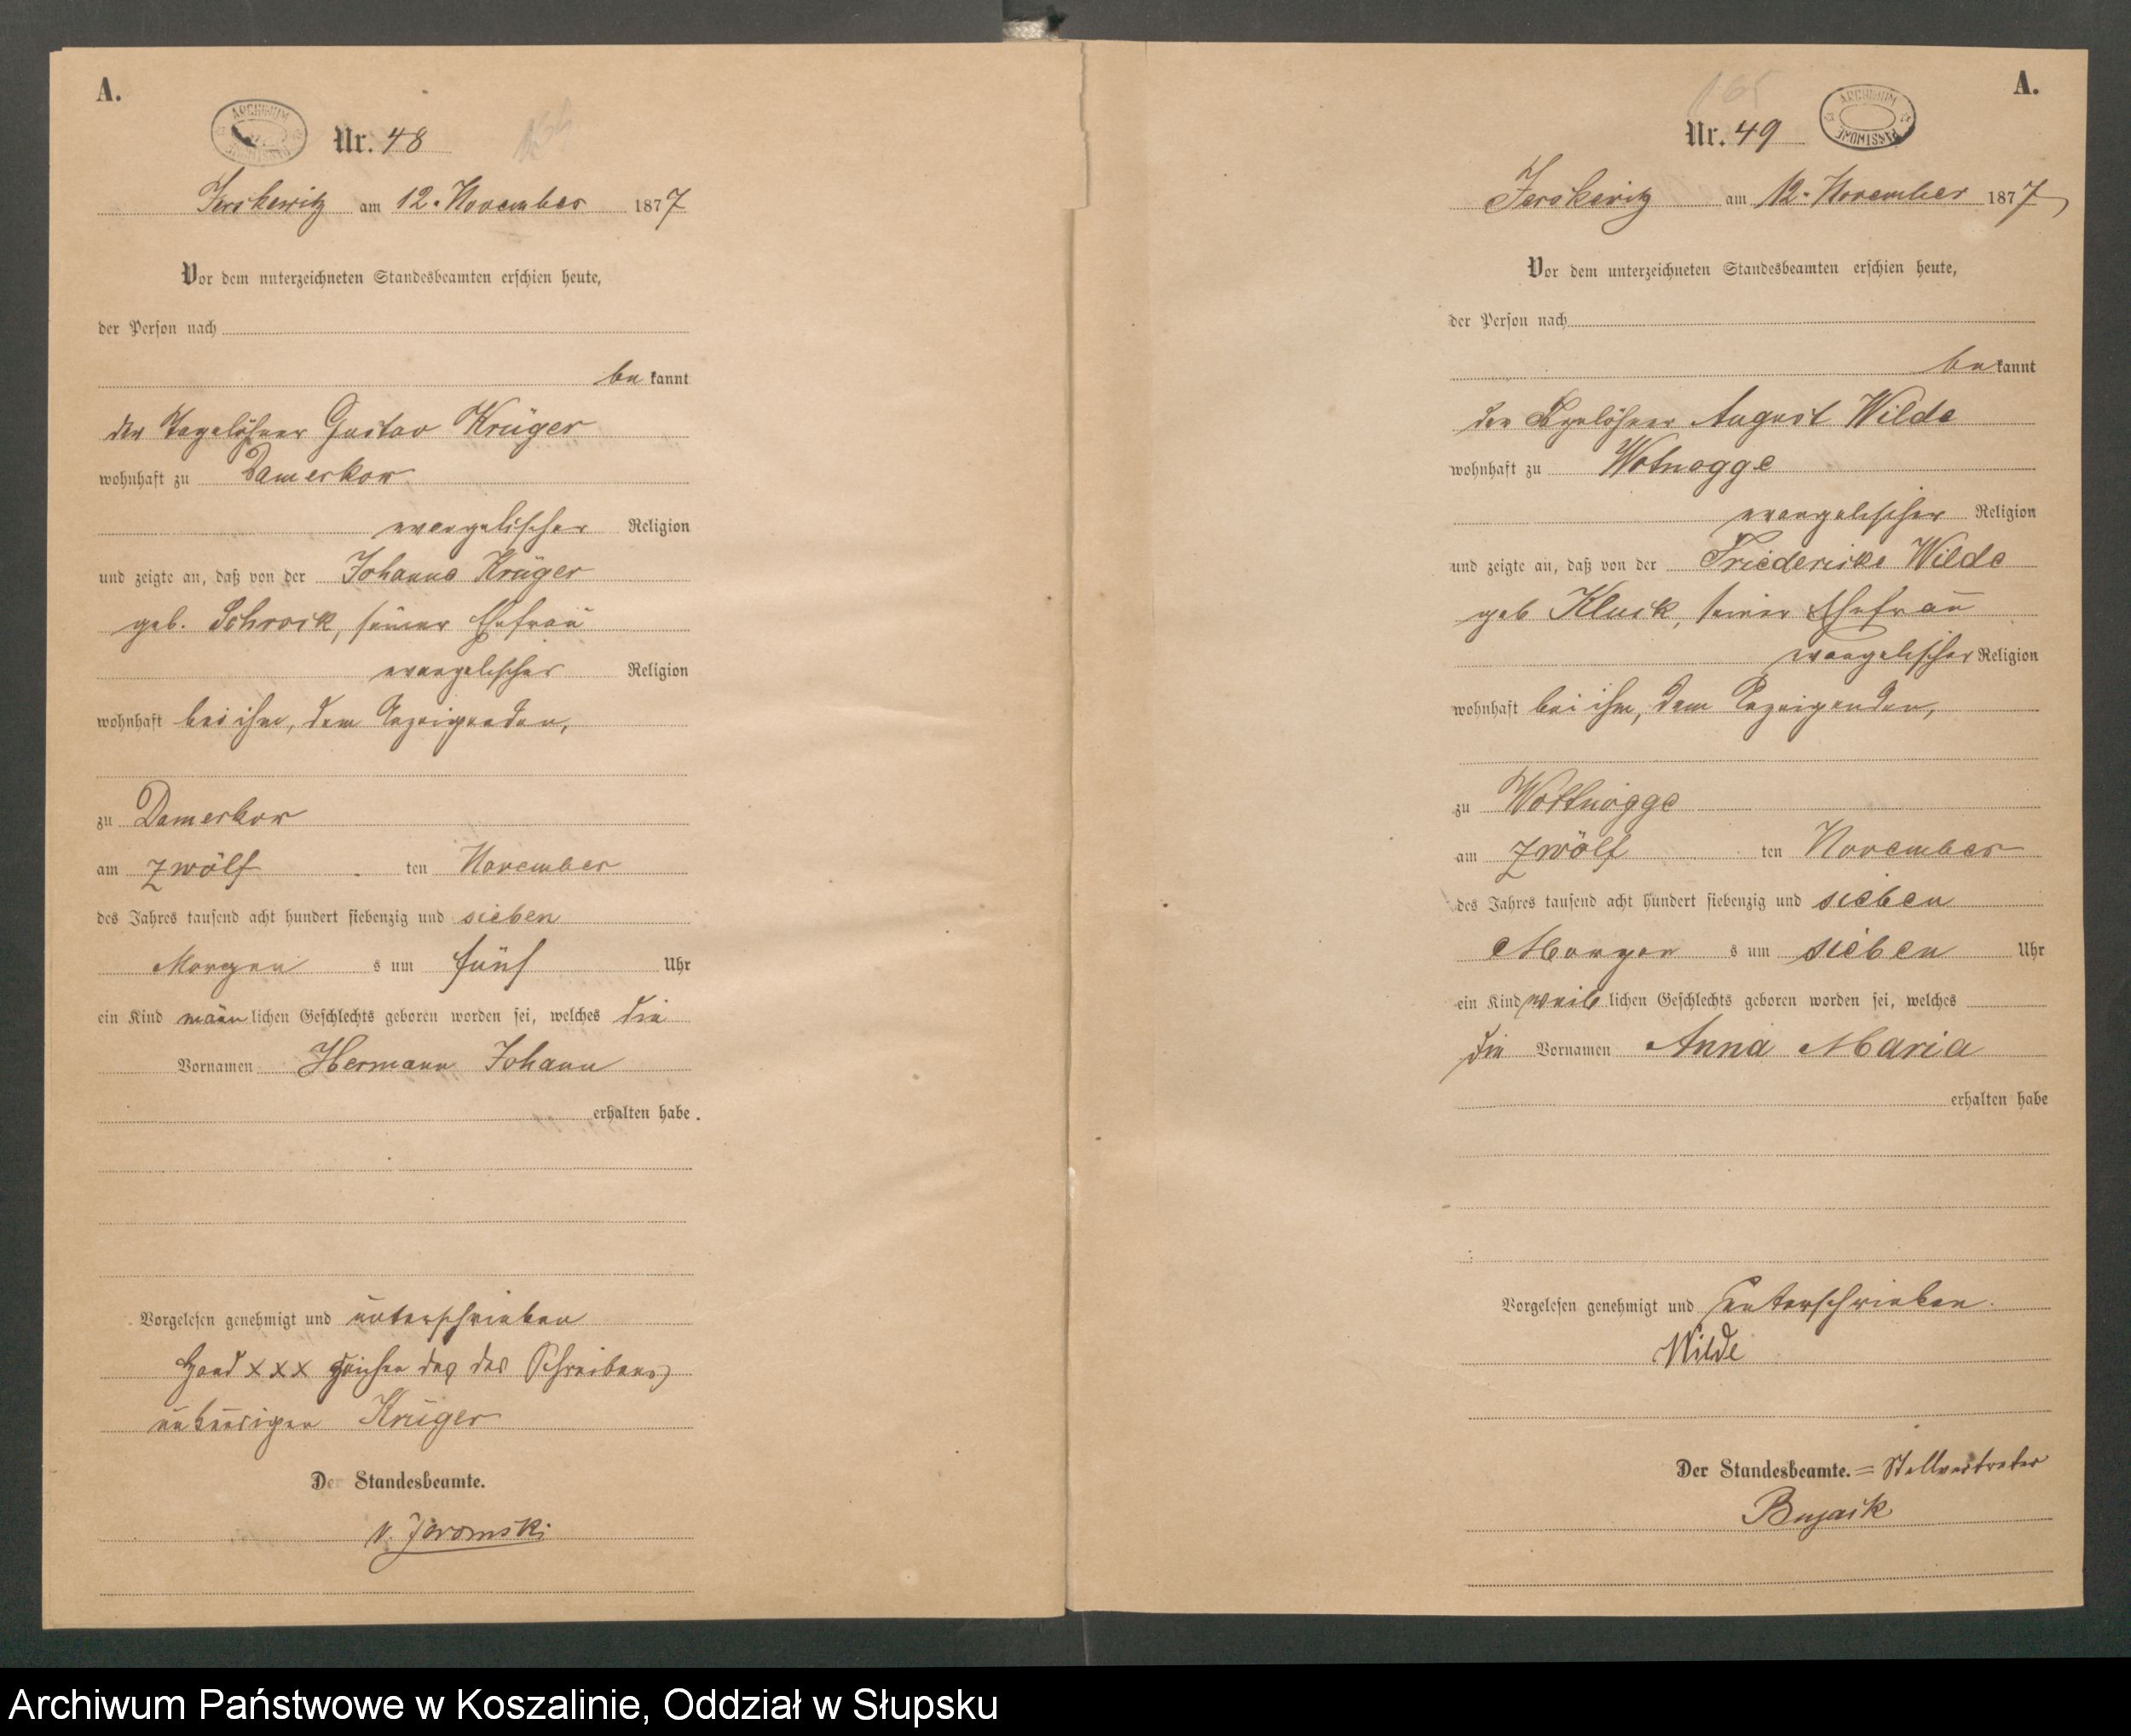 A.
ARCHIWUM
Nr. 48
Jerskewitz am 12. November 1877
Vor dem unterzeichneten Standesbeamten erschien heute,
der Person nach
be kannt
der Tagelöhner Gustav Krüger
wohnhaft zu Damerkow
evangelischer Religion
und zeigte an, daß von der Johanne Krüger
geb. Schrock, seiner Ehefrau
evangelischer Religion
wohnhaft bei ihm, dem Anzeigenden,
zu Damerkow
am zwölf ten November
des Jahres tausend acht hundert siebenzig und sieben
Morgen s um fünf Uhr
ein Kind männ lichen Geschlechts geboren worden sei, welches die
Vornamen Hermann Johann
erhalten habe.
Vorgelesen genehmigt und unterschrieben
Hand x x x zeichen des des Schreibens
unkundigen Krüger
Der Standesbeamte.
A.
165
ARCHIWUM PAŃSTWOWE
Nr. 49
Jerskewitz am 12. November 1877
Vor dem unterzeichneten Standesbeamten erschien heute,
der Person nach
be kannt
der Tagelöhner August Wilde
wohnhaft zu Wotnogge
evangelischer Religion
und zeigte an, daß von der Friedericke Wilde
geb Kluck, seiner Ehefrau
evangelischer Religion
wohnhaft bei ihm, dem Anzeigenden,
zu Wottnogge
am zwölf ten November
des Jahres tausend acht hundert siebenzig und sieben
Morgen s um sieben Uhr
ein Kind weib lichen Geschlechts geboren worden sei, welches
die Vornamen Anna Maria
erhalten habe
Vorgelesen genehmigt und unterschrieben.
Wilde
Der Standesbeamte. = Stellvertreter
Archiwum Państwowe w Koszalinie, Oddział w Słupsku